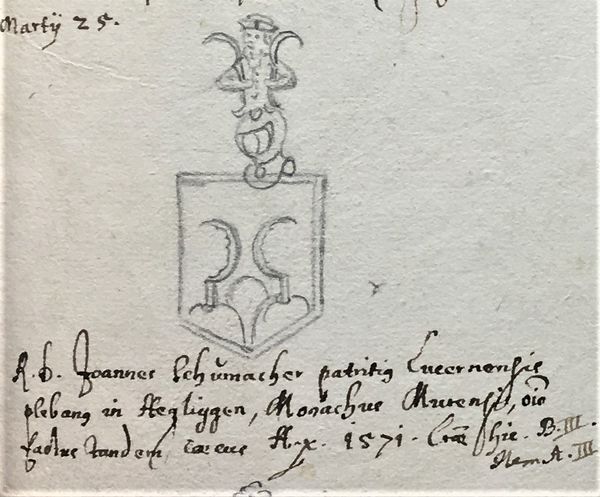 Martÿ 25.
R. D. Joannes Schŭmacher patritiꝰ Lucernensis
plebanꝰ in Hegliggen, Monachus Murensis,
factus tandem cæcus 1571. hic. B. III.
Item A. III